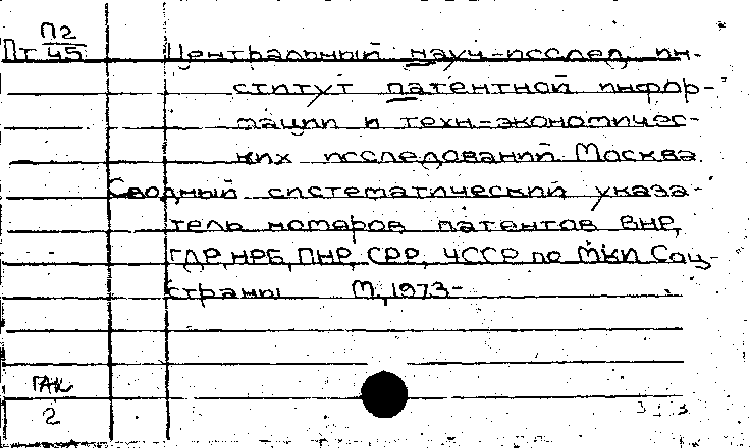 П2
Пт 45
Центральный науч-исслед. ин-
ститут патентной инфор-
мации и техн-экономичес-
ких исследований. Москва
Сводный систематический указа-
тель номеров патентов ВНР,
ГДР, НРБ, ПНР, СРР, ЧССР по МКИ Соц-
страны М., 1973-
ГАК
2